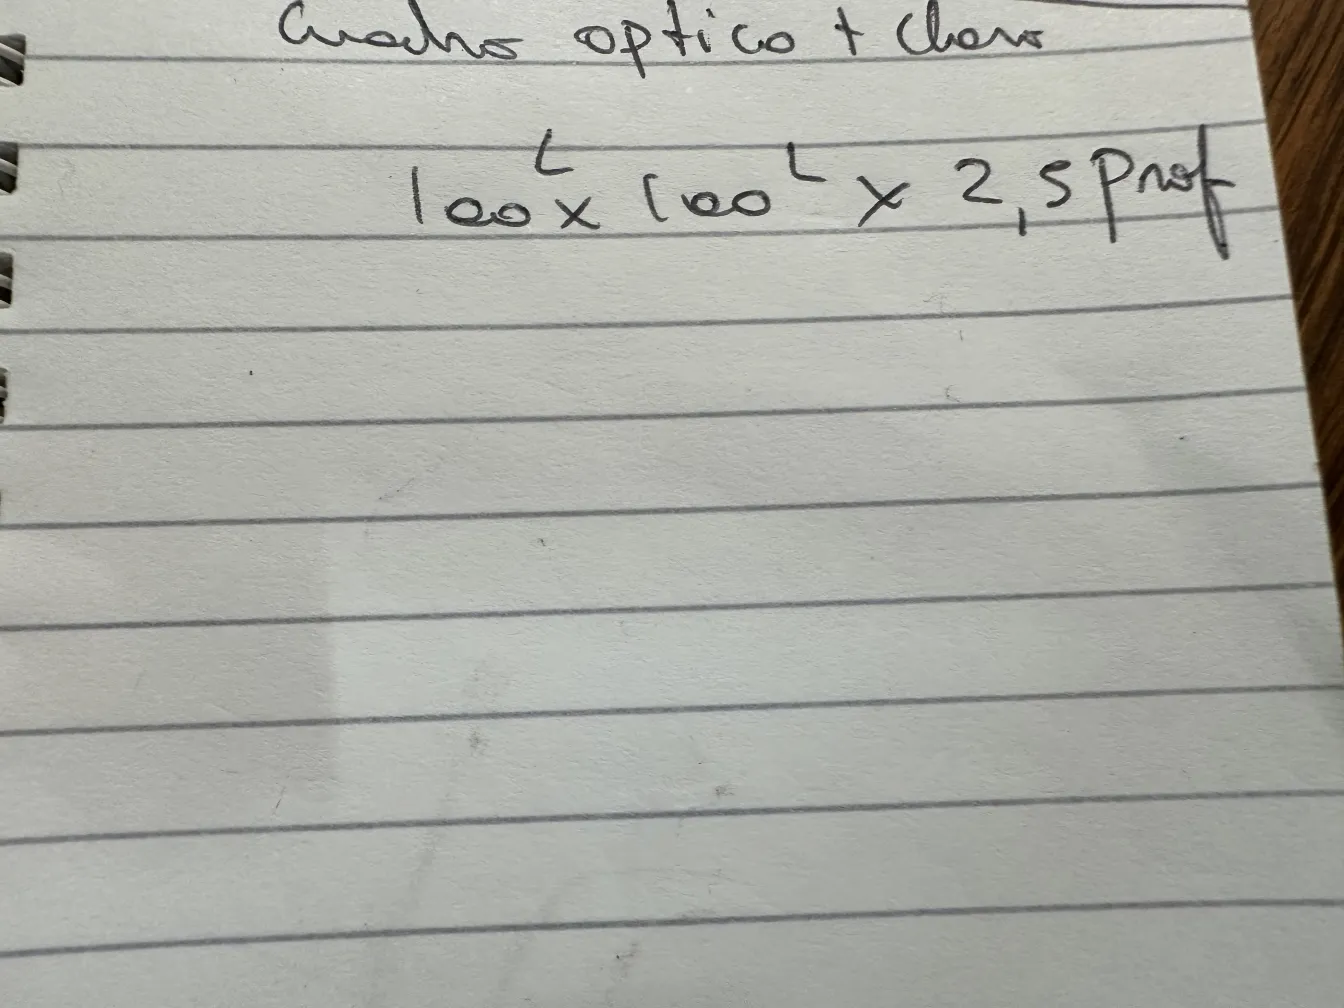 Cuadro optico + Claro
100 L x 100 L x 2,5 Prof